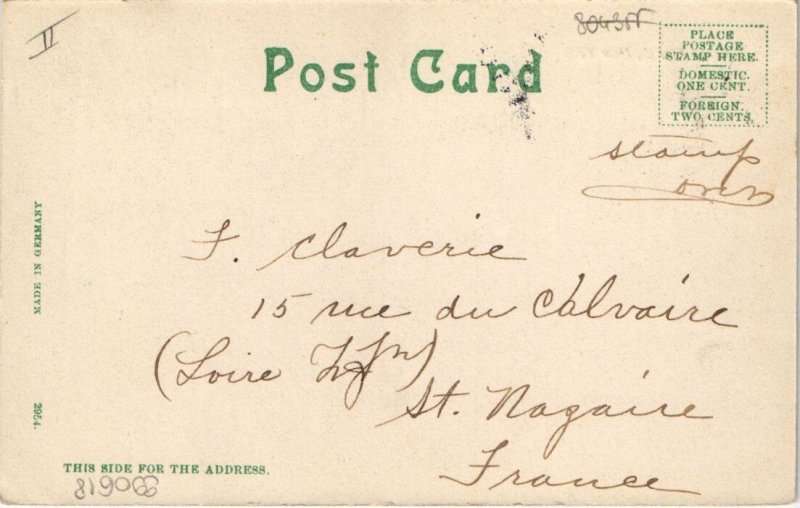 II
80435
Post Card
PLACE
POSTAGE
STAMP HERE.
DOMESTIC.
ONE CENT.
FOREIGN.
TWO CENTS.
stamp
F. Claverie
15 rue du Calvaire
(Loire
St. Nazaire
France
MADE IN GERMANY
2954.
THIS SIDE FOR THE ADDRESS.